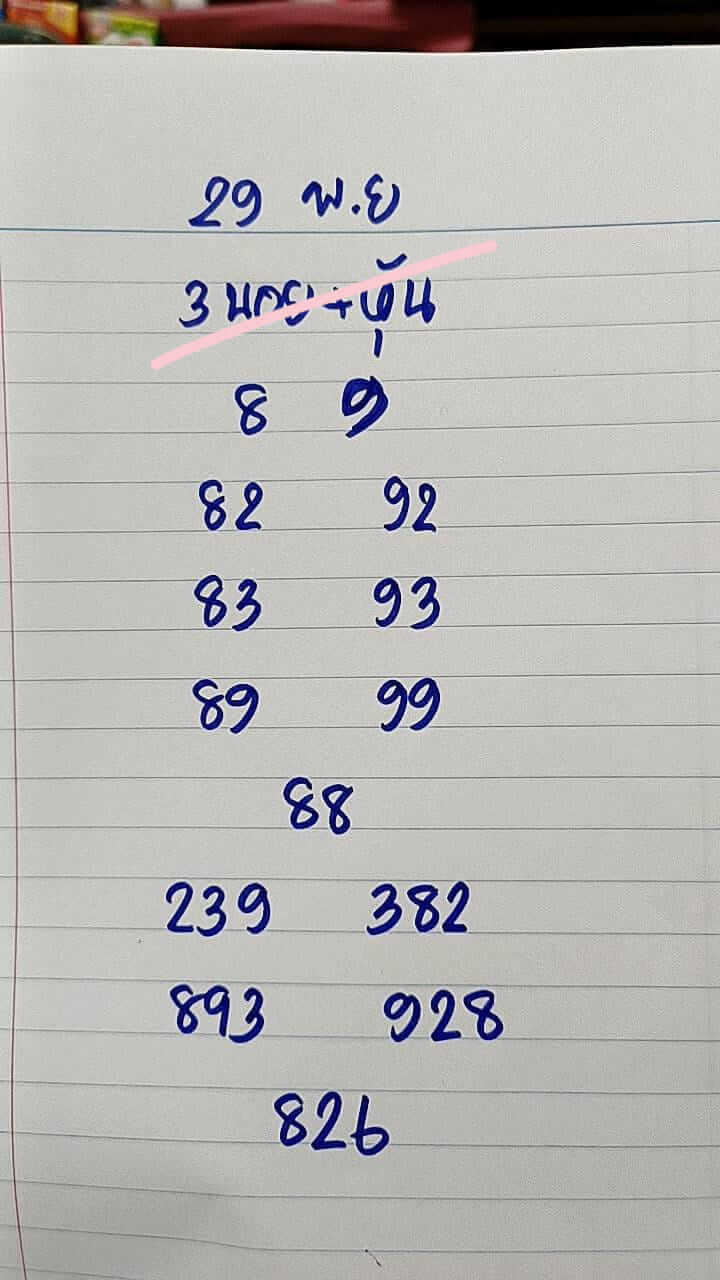 29 พ.ย
3 นอย + หุ้น
8 9
82 92
83 93
89 99
88
239 382
893 928
826